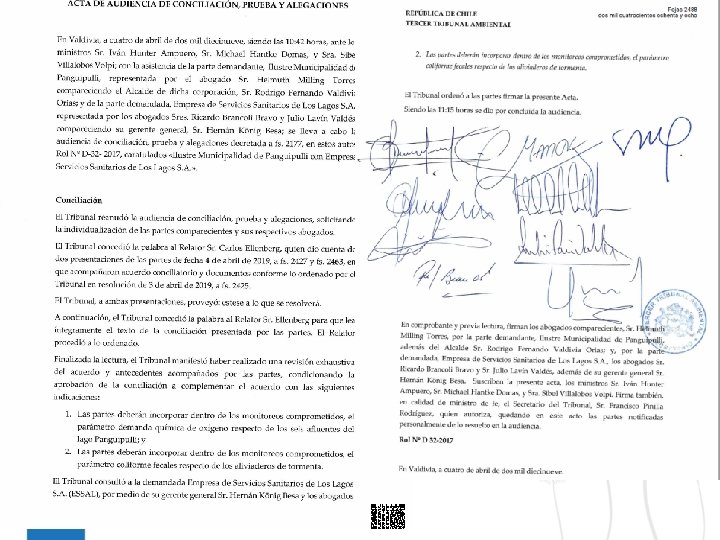 ACTA DE AUDIENCIA DE CONCILIACIÓN, PRUEBA Y ALEGACIONES
En Valdivia, a cuatro de abril de dos mil diecinueve, siendo las 10:42 horas, ante lo
ministros Sr. Iván Hunter Ampuero, Sr. Michael Hantke Domas, y Sra. Sibe
Villalobos Volpi; con la asistencia de la parte demandante, Ilustre Municipalidad d
Panguipulli, representada por el abogado Sr. Helmuth Milling Torres
compareciendo el Alcalde de dicha corporación, Sr. Rodrigo Fernando Valdivi
Orias; y de la parte demandada, Empresa de Servicios Sanitarios de Los Lagos S.A.
representada por los abogados Sres. Ricardo Brancoli Bravo y Julio Lavín Valdés
compareciendo su gerente general, Sr. Hernán König Besa; se lleva a cabo l
audiencia de conciliación, prueba y alegaciones decretada a fs. 2177, en estos auto
Rol Nº D-32- 2017, caratulados «Ilustre Municipalidad de Panguipulli con Empres
Servicios Sanitarios de Los Lagos S.A.».
Conciliación
El Tribunal reanudó la audiencia de conciliación, prueba y alegaciones, solicitando
la individualización de las partes comparecientes y sus respectivos abogados.
El Tribunal concedió la palabra al Relator Sr. Carlos Ellenberg, quien dio cuenta de
dos presentaciones de las partes de fecha 4 de abril de 2019, a fs. 2427 y fs. 2463, en
que acompañaron acuerdo conciliatorio y documentos conforme lo ordenado por el
Tribunal en resolución de 3 de abril de 2019, a fs. 2425.
El Tribunal, a ambas presentaciones, proveyó: estese a lo que se resolverá.
A continuación, el Tribunal concedió la palabra al Relator Sr. Ellenberg para que lea
íntegramente el texto de la conciliación presentada por las partes. El Relator
procedió a lo ordenado.
Finalizada la lectura, el Tribunal manifestó haber realizado una revisión exhaustiva
del acuerdo y antecedentes acompañados por las partes, condicionando la
aprobación de la conciliación a complementar el acuerdo con las siguientes
indicaciones:
1. Las partes deberán incorporar dentro de los monitoreos comprometidos, el
parámetro demanda química de oxígeno respecto de los seis afluentes del
lago Panguipulli; y
2. Las partes deberán incorporar dentro de los monitoreos comprometidos, el
parámetro coliforme fecales respecto de los aliviaderos de tormenta.
El Tribunal consultó a la demandada Empresa de Servicios Sanitarios de Los Lagos
S.A. (ESSAL), por medio de su gerente general Sr. Hernán König Besa y los abogados
Fojas 2488
dos mil cuatrocientos ochenta y ocho
REPÚBLICA DE CHILE
TERCER TRIBUNAL AMBIENTAL
2. Las partes deberán incorporar dentro de los monitoreos comprometidos, el parámetro
coliforme fecales respecto de los aliviaderos de tormenta.
El Tribunal ordenó a las partes firmar la presente Acta.
Siendo las 11:15 horas se dio por concluida la audiencia.
En comprobante y previa lectura, firman los abogados comparecientes, Sr. Helmuth
Milling Torres, por la parte demandante, Ilustre Municipalidad de Panguipulli,
además del Alcalde Sr. Rodrigo Fernando Valdivia Orias; y, por la parte
demandada, Empresa de Servicios Sanitarios de Los Lagos S.A., los abogados Sr.
Ricardo Brancoli Bravo y Sr. Julio Lavín Valdés, además de su gerente general Sr.
Hernán König Besa. Suscriben la presente acta, los ministros Sr. Iván Hunter
Ampuero, Sr. Michael Hantke Domas, y Sra. Sibel Villalobos Volpi. Firma también,
en calidad de ministro de fe, el Secretario del Tribunal, Sr. Francisco Pinilla
Rodríguez, quien autoriza, quedando en este acto las partes notificadas
personalmente de lo resuelto en la audiencia.
Rol Nº D 32-2017
En Valdivia, a cuatro de abril de dos mil diecinueve.